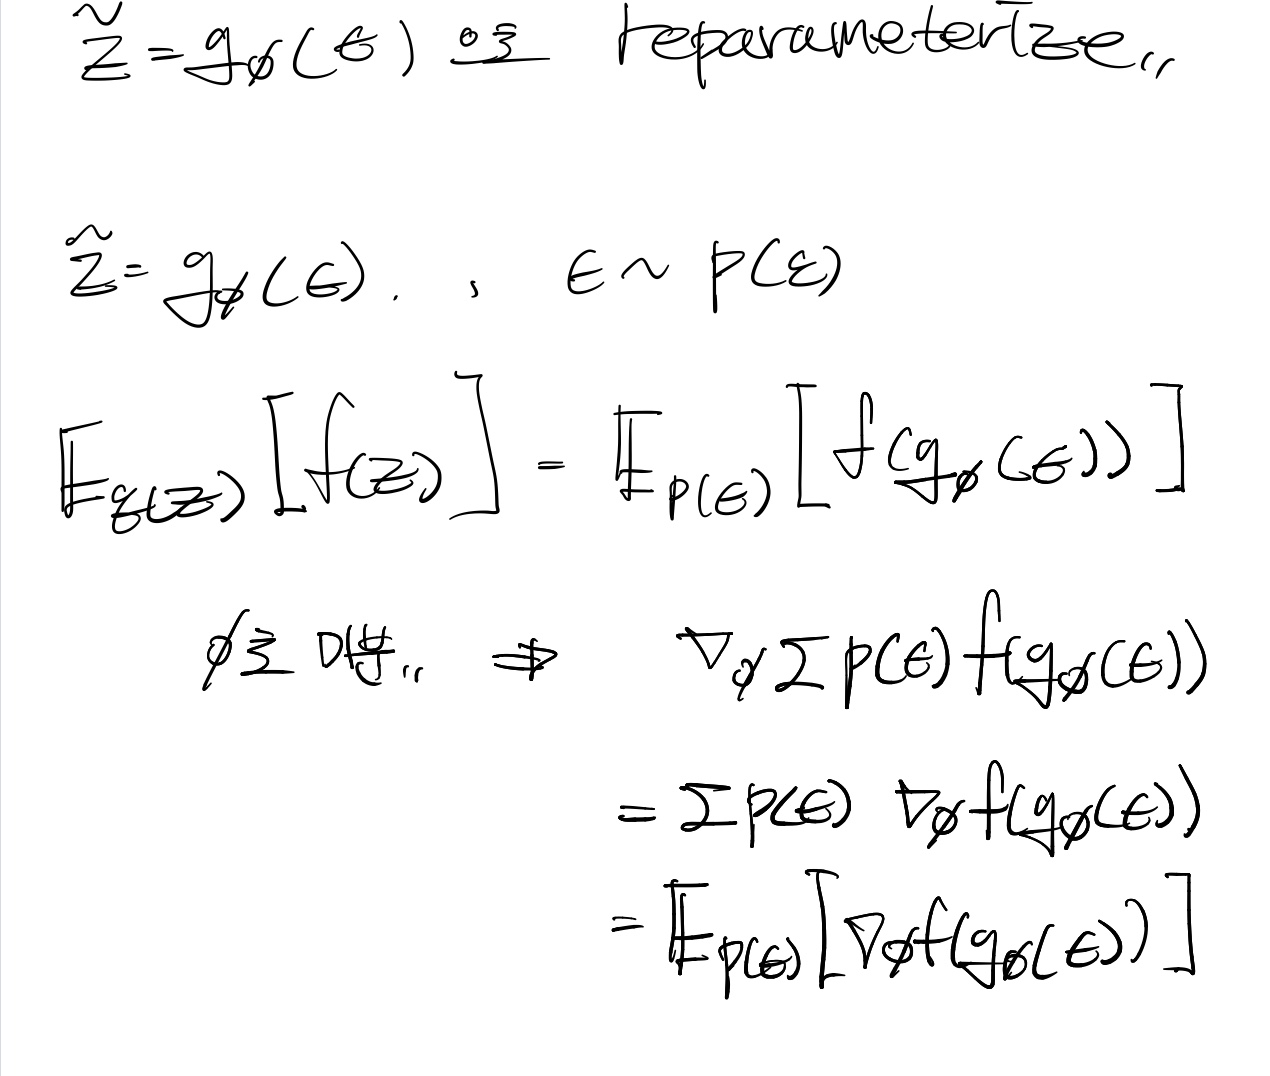 z̃ = g_ϕ(ϵ) 으로 reparameterize,,
z̃ = g_ϕ(ϵ). , ϵ ~ p(ε)
𝔼_q(z) [f(z)] = 𝔼_p(ϵ) [f(g_ϕ(ϵ))]
ϕ로 미분,, ⇒ ∇_ϕ Σ p(ϵ) f(g_ϕ(ϵ))
= Σ p(ϵ) ∇_ϕ f(g_ϕ(ϵ))
= 𝔼_p(ϵ) [∇_ϕ f(g_ϕ(ϵ))]